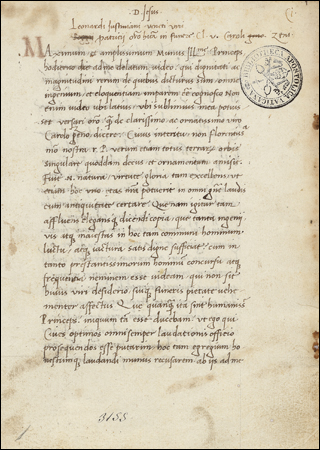 D. Jesus
Leonardi Justiniani veneti viri
patricij oro hita in funere Cl. v. Caroli zeni
Maximum et amplissimum munus Ill. Princeps
hodierno die ad me delatum video, qui dignitati ac
magnitudini rerum de quibus dicturus sum, omne
ingenium, et eloquentiam imparem esse cognosco. Non
enim video ubi latius, ubi sublimius mea potuis
set versari oro, quam de clarissimo, ac ornatissimo viro
Carolo zeno, dicere. Cuius interitu, non florentissi
mo nostra r. P. verum etiam totus terrarum orbis
singulare quoddam decus et ornamentum amisit.
Fuit natura, virtute, gloria tam excellens, ut
unum hoc viro, aetas ista potuerit in omni genere laudis
cum antiquitate certare. Quae nam igitur tam
affluens, elegansque dicendi copia, quae tanti ingenij
vis atque maiestas in hoc tam communi hominum
luctu, atque iactura satis digne sufficiat, cum in
tanto prestantissimorum hominum concursu atque
frequentia, neminem esse videam, qui non sit
huius viri desiderio, suique funeris pietate vehe
menter affectus. Que quamquam ita sint humanissime
Princeps, iniquum tamen esse ducebam, ut ego qui
Cives optimos omni semper laudationis officio
prosequendos esse putarem, hoc tam egregium ho
nestumque laudandi munus recusarem, ab ijs ad me
3155